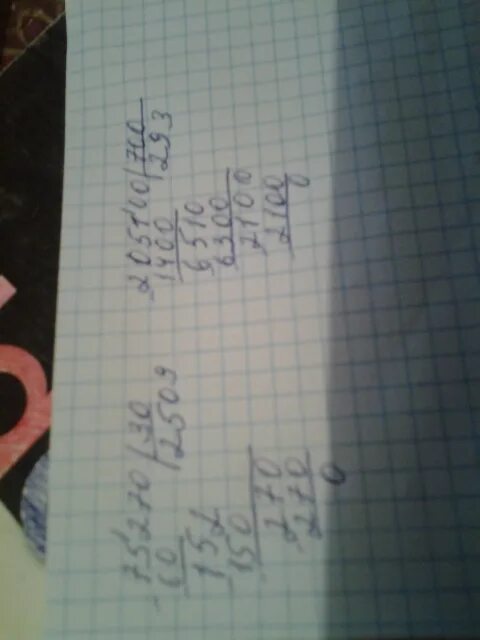 75270 | 30
60 | 2509
152
150
270
270
0
205100 | 700
1400 | 293
6510
6300
2100
2100
0